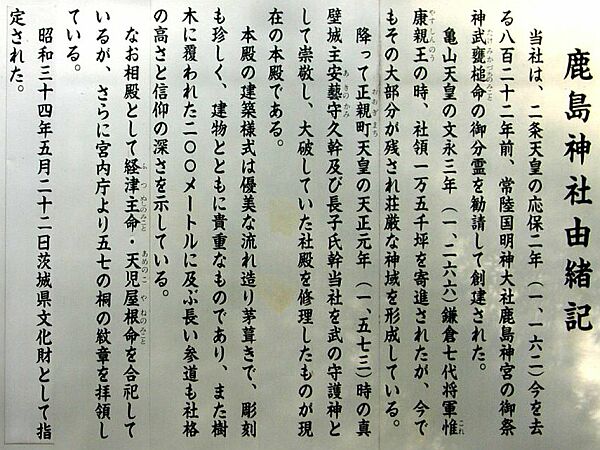 鹿島神社由緒記
当社は、二条天皇の応保二年（一、一六二）今を去
る八百二十二年前、常陸国明神大社鹿島神宮の御祭
神武甕槌命の御分霊を勧請して創建された。
亀山天皇の文永三年（一、二六六）鎌倉七代将軍惟
康親王の時、社領一万五千坪を寄進されたが、今で
もその大部分が残され荘厳な神域を形成している。
降って正親町天皇の天正元年（一、五七三）時の真
壁城主安藝守久幹及び長子氏幹当社を武の守護神と
して崇敬し、大破していた社殿を修理したものが現
在の本殿である。
本殿の建築様式は優美な流れ造り茅葺きで、彫刻
も珍しく、建物とともに貴重なものであり、また樹
木に覆われた二〇〇メートルに及ぶ長い参道も社格
の高さと信仰の深さを示している。
なお相殿として経津主命・天児屋根命を合祀して
いるが、さらに宮内庁より五七の桐の紋章を拝領し
ている。
昭和三十四年五月二十二日茨城県文化財として指
定された。